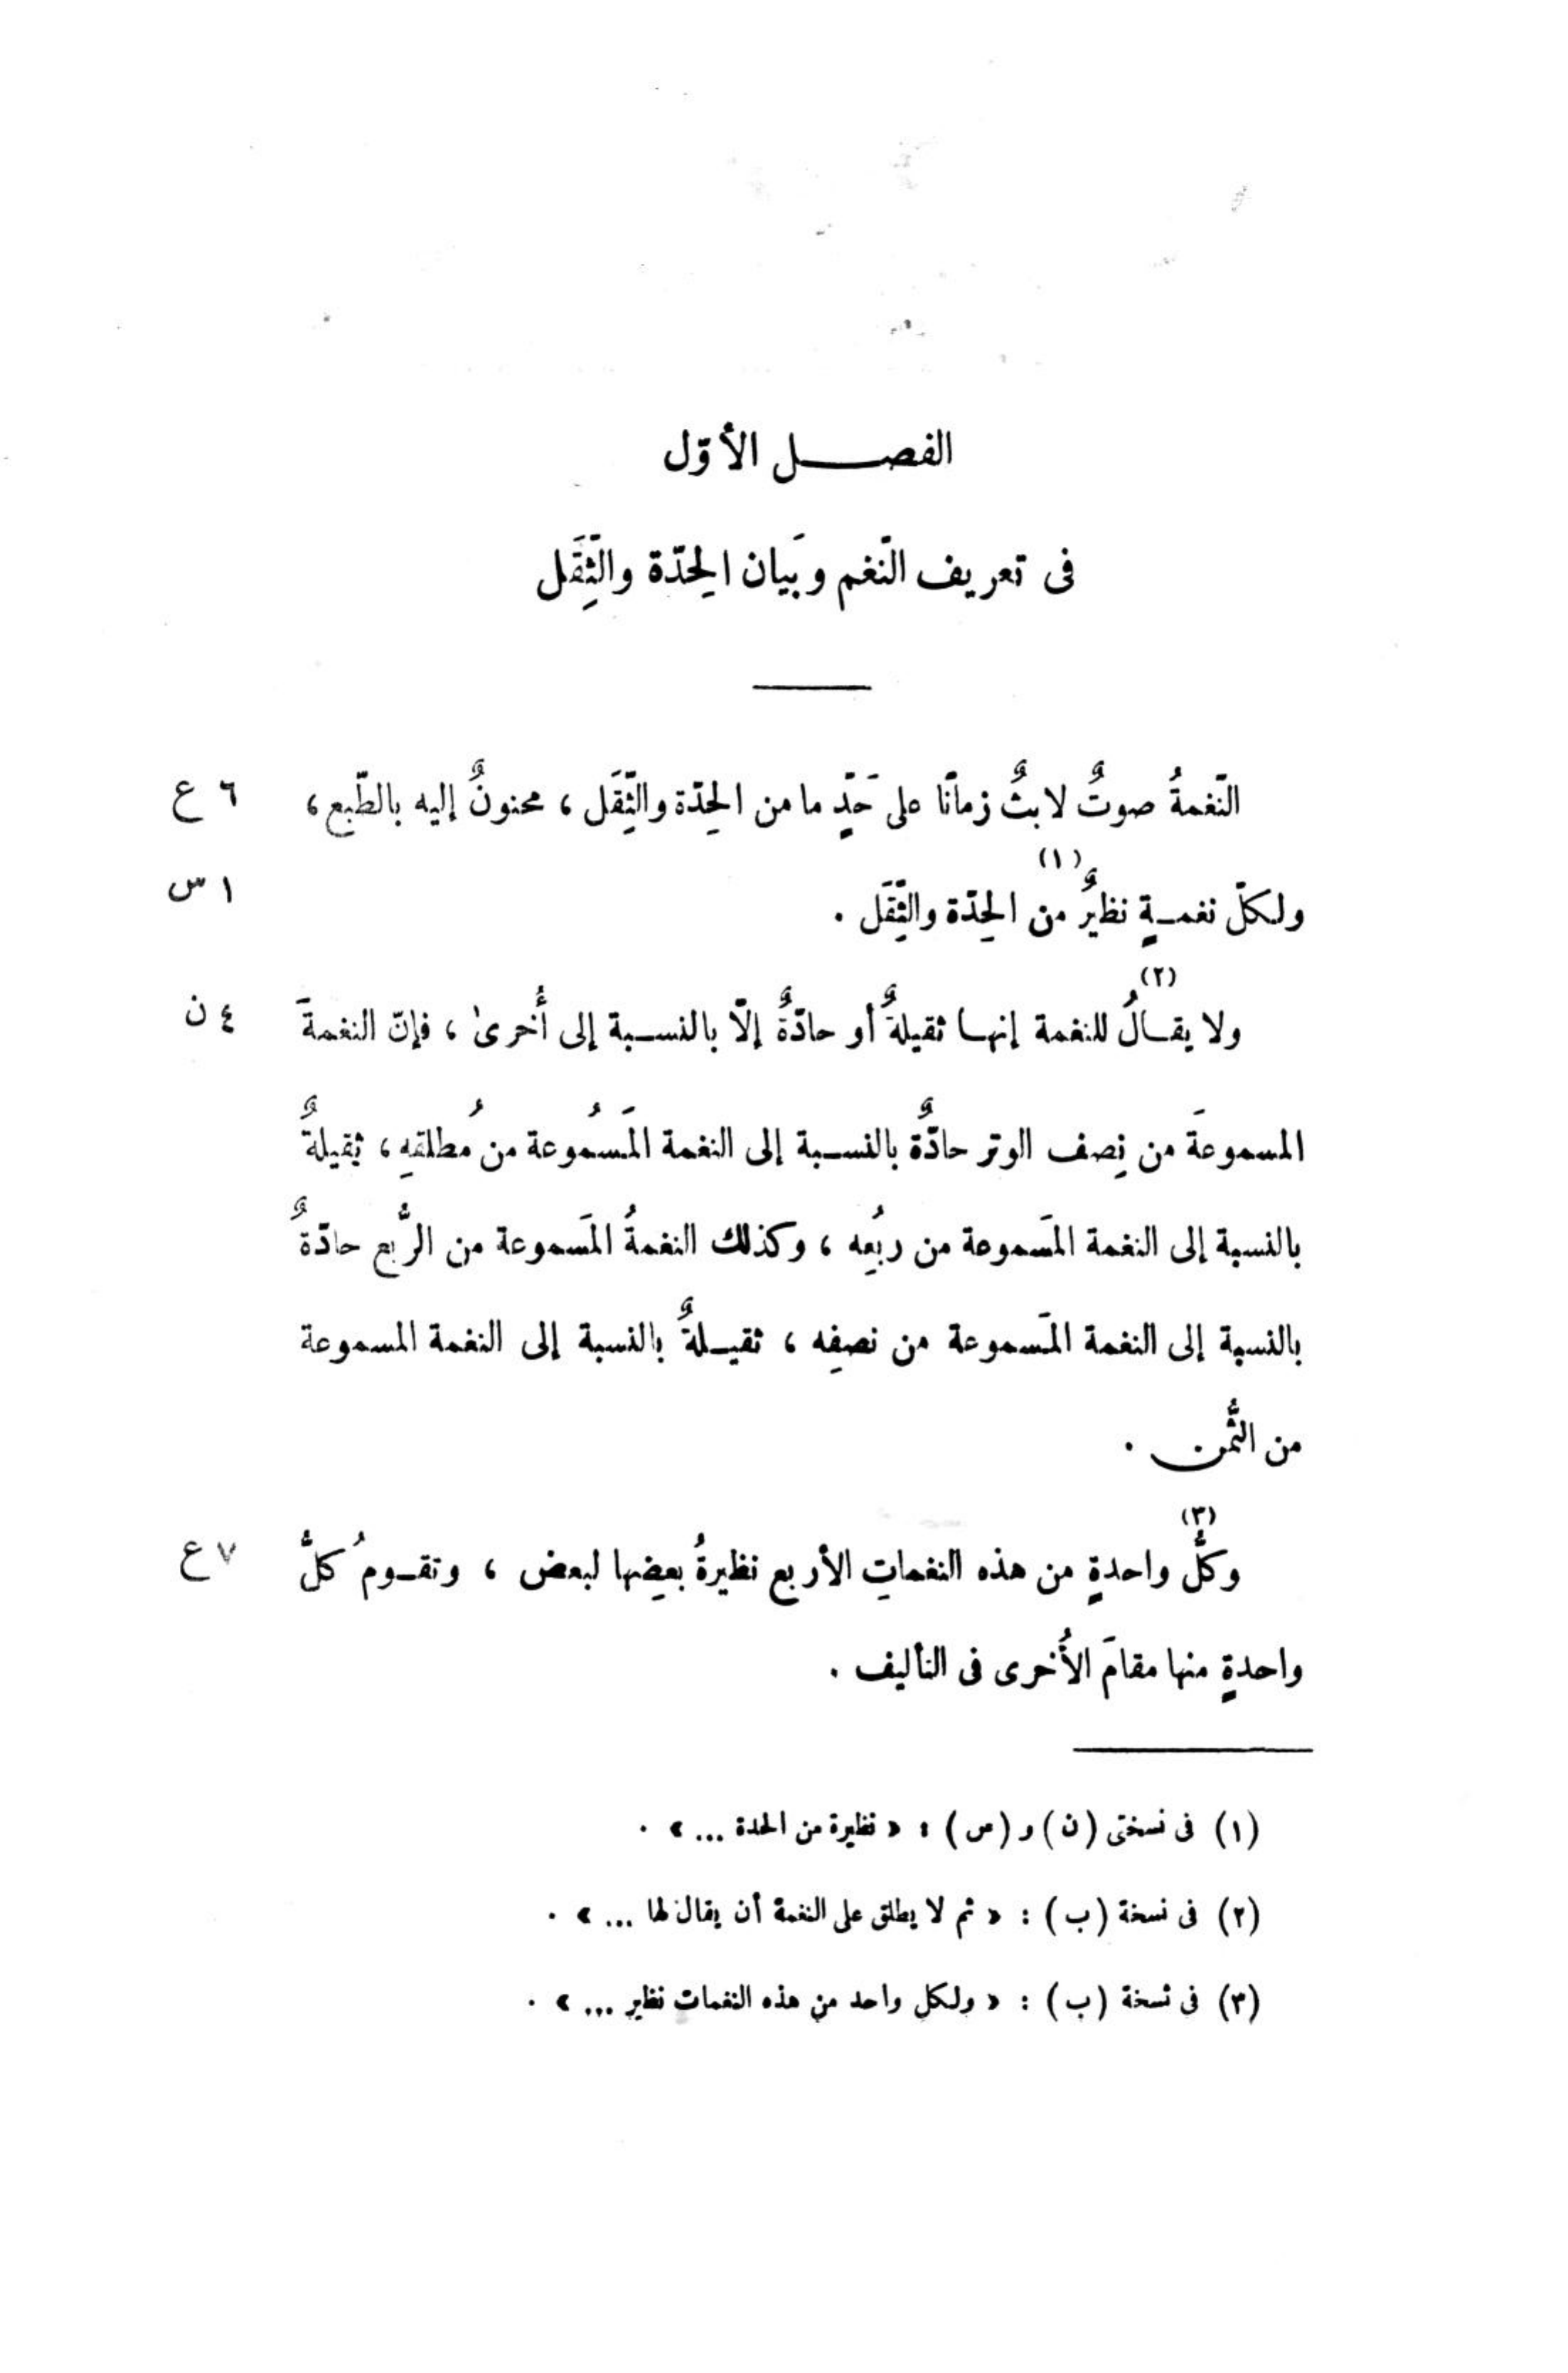 الفصل الأوّل
فى تعريف النّغم وبَيان الحِدّة والثِّقَل
النّغمةُ صوتٌ لابثٌ زمانًا على حَدٍّ ما من الحِدّة والثِّقَل ، محنونٌ إليه بالطّبع ، ٦ ع
ولكلّ نغمةٍ نظيرٌ (١) من الحِدّة والثِّقَل . ١ س
ولا يقالُ (٢) للنغمة إنها ثقيلةٌ أو حادّةٌ إلّا بالنسبة إلى أُخرىٰ ، فإنّ النغمةَ ٤ ن
المسموعَة من نِصف الوتر حادّةٌ بالنسبة إلى النغمة المَسمُوعة من مُطلقهِ ، ثقيلةٌ
بالنسبة إلى النغمة المَسموعة من ربُعِه ، وكذلك النغمةُ المَسموعة من الرُّبع حادّةٌ
بالنسبة إلى النغمة المَسموعة من نصفِه ، ثقيلةٌ بالنسبة إلى النغمة المسموعة
من الثُّمن .
وكلُّ (٣) واحدةٍ من هذه النغماتِ الأربع نظيرةُ بعضِها لبعض ، وتقومُ كلُّ ٧ ع
واحدةٍ منها مقامَ الأُخرى فى التأليف .
(١) فى نسختى (ن) و (س) : « نظيرة من الحدة ... » .
(٢) فى نسخة (ب) : « ثم لا يطلق على النغمة أن يقال لها ... » .
(٣) فى نسخة (ب) : « ولكل واحد من هذه النغمات نظير ... » .